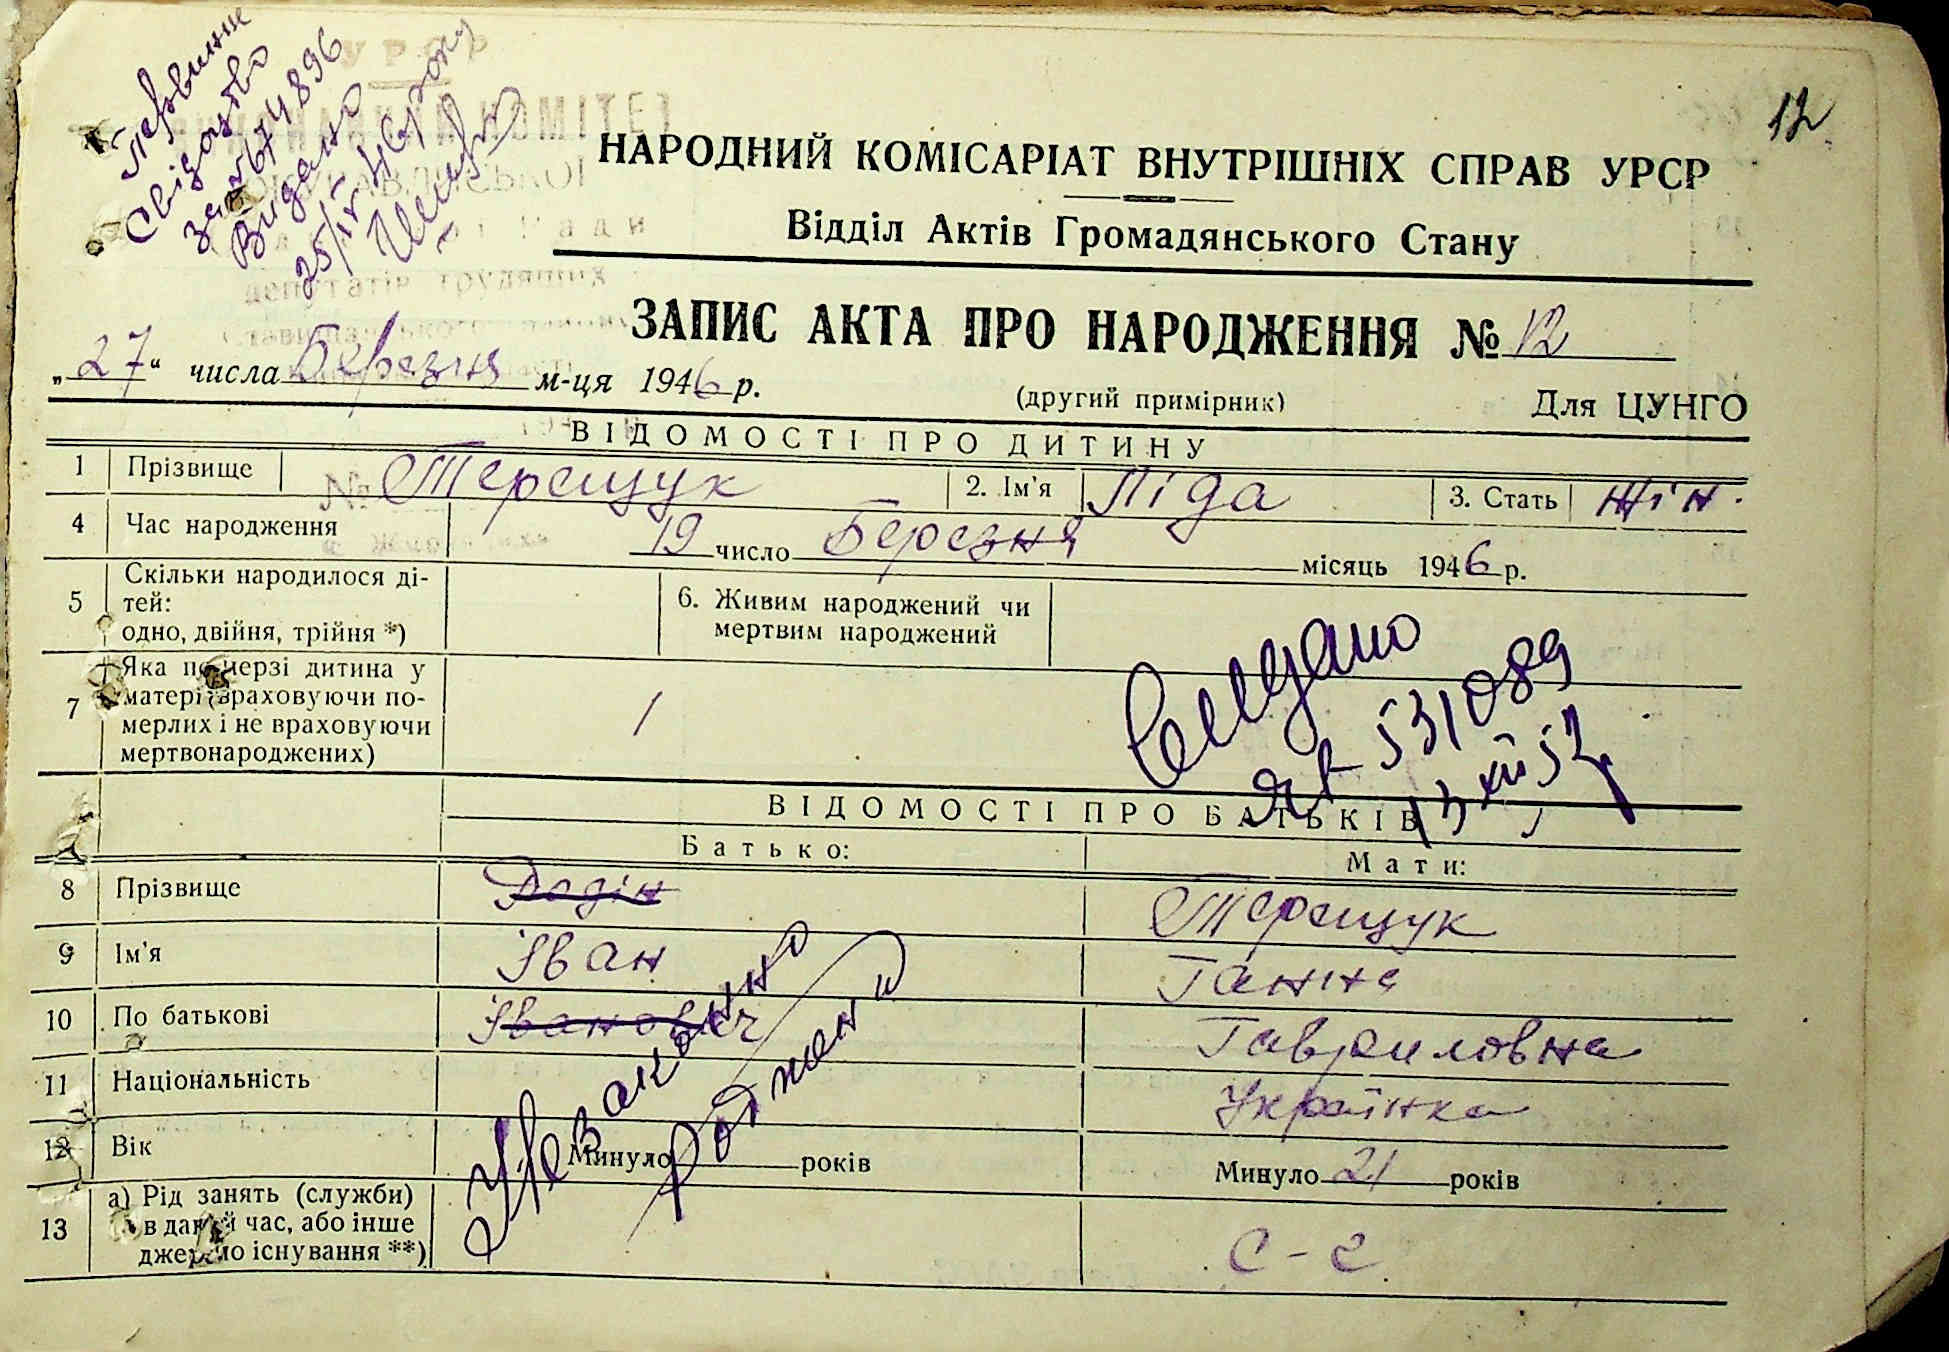 Первинне
Свідоцтво
за № 674896
Видано
25/IV-46 року
УРСР
КОМІТЕТ
депутатів трудящих
12
НАРОДНИЙ КОМІСАРІАТ ВНУТРІШНІХ СПРАВ УРСР
Відділ Актів Громадянського Стану
ЗАПИС АКТА ПРО НАРОДЖЕННЯ № 12
„27“ числа Березня м-ця 1946 р.
(другий примірник)
Для ЦУНГО
ВІДОМОСТІ ПРО ДИТИНУ
1 Прізвище Терещук 2. Ім'я Ліда 3. Стать жін.
4 Час народження 19 число Березня місяць 1946 р.
5 Скільки народилося ді-
тей:
одно, двійня, трійня *)
6. Живим народжений чи
мертвим народжений
7 Яка по черзі дитина у
матері (враховуючи по-
мерлих і не враховуючи
мертвонароджених)
1
531089
ВІДОМОСТІ ПРО БАТЬКІВ
Батько: Мати:
8 Прізвище Терещук
9 Ім'я Іван Ганна
10 По батькові Іванович Гавриловна
11 Національність Українка
12 Вік Минуло років Минуло 21 років
13 а) Рід занять (служби)
в даний час, або інше
джерело існування **)
С-г